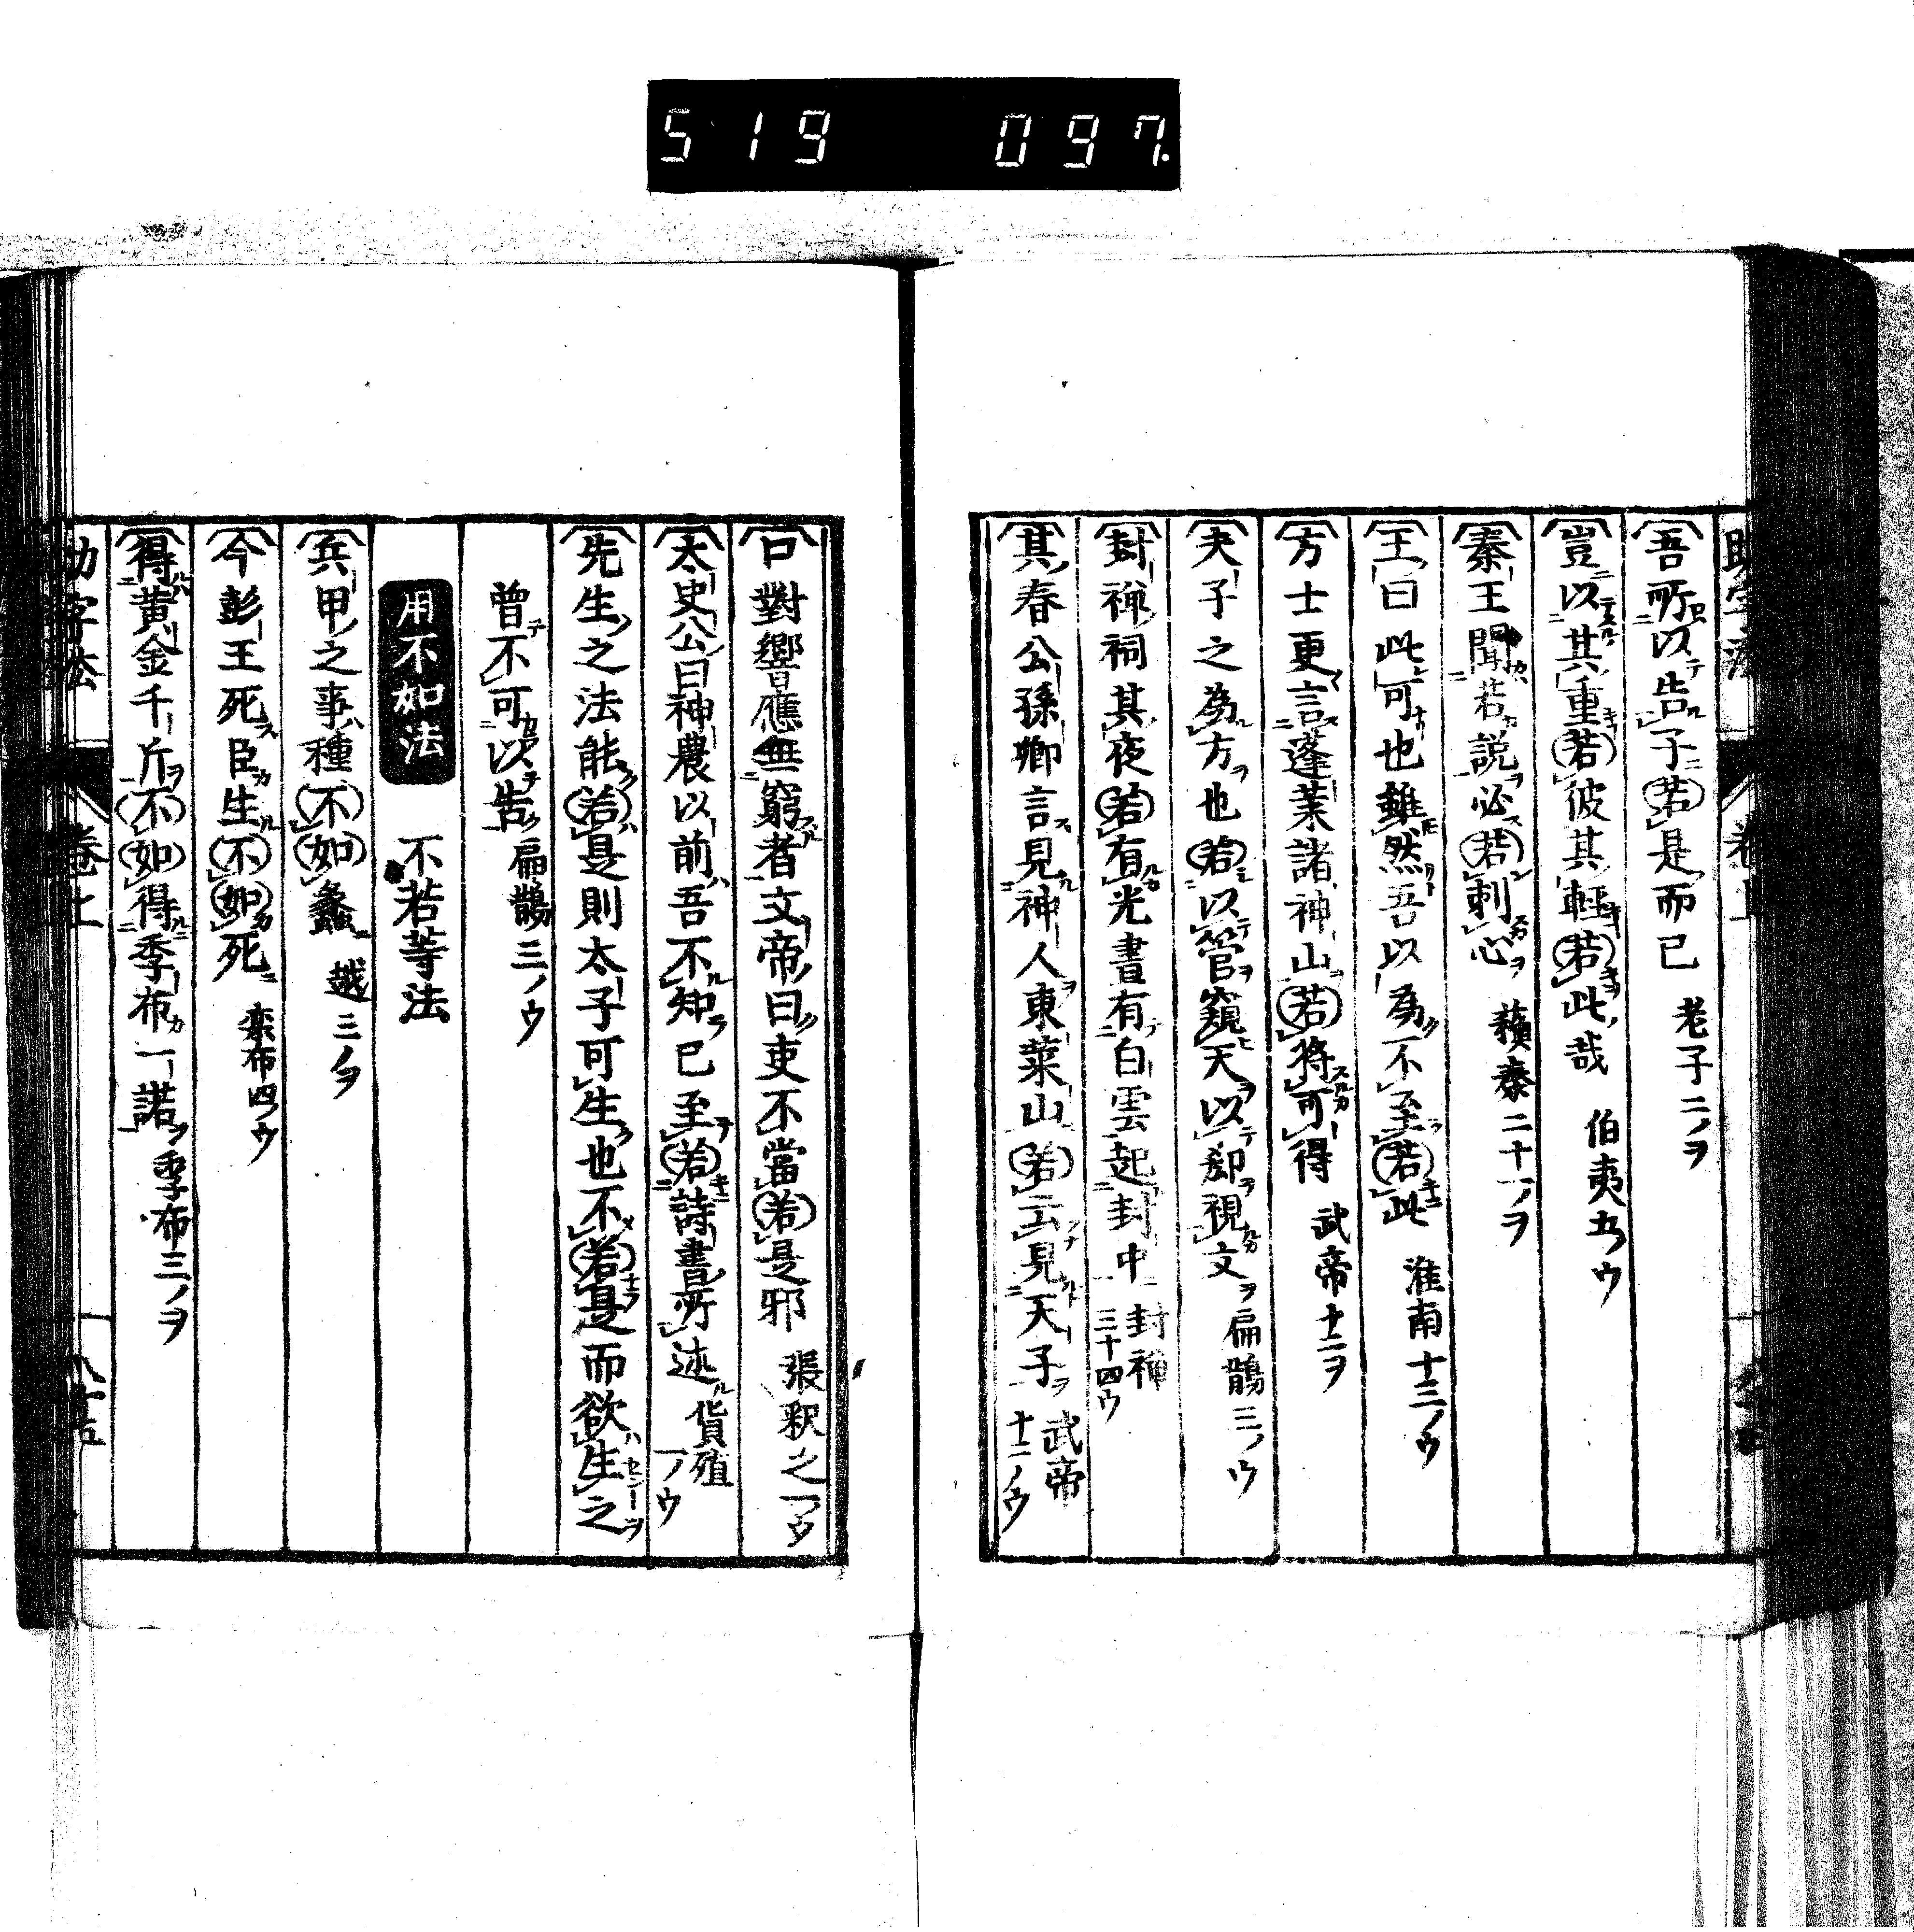 519 097.
吾所以告子若是而已 老子二ノヲ
豈以其重若彼其輕若此哉 伯夷五ウ
秦王聞若説必若刺心 蘇秦二十一ノヲ
王曰此可也雖然吾以為不至若此 淮南十三ノウ
方士更言蓬萊諸神山若將可得 武帝十二ヲ
夫子之為方也若以管窺天以郄視文 扁鵲三ノウ
封禅祠其夜若有光晝有白雲起封中 封禅三十四ウ
其春公孫卿言見神人東萊山若云見天子 武帝十二ノウ
口對響應無窮者文帝曰吏不當若是邪 張釈之一ノウ
太史公曰神農以前吾不知已至若詩書所述 貨殖一ノウ
先生之法能若是則太子可生也不若是而欲生之
曾不可以告 扁鵲三ノウ
用不如法 不若等法
兵甲之事種不如蠡 越三ノヲ
今彭王死臣生不如死 栾布四ノウ
得黄金千斤不如得季布一諾 季布三ノヲ
助字法 卷上 八十五